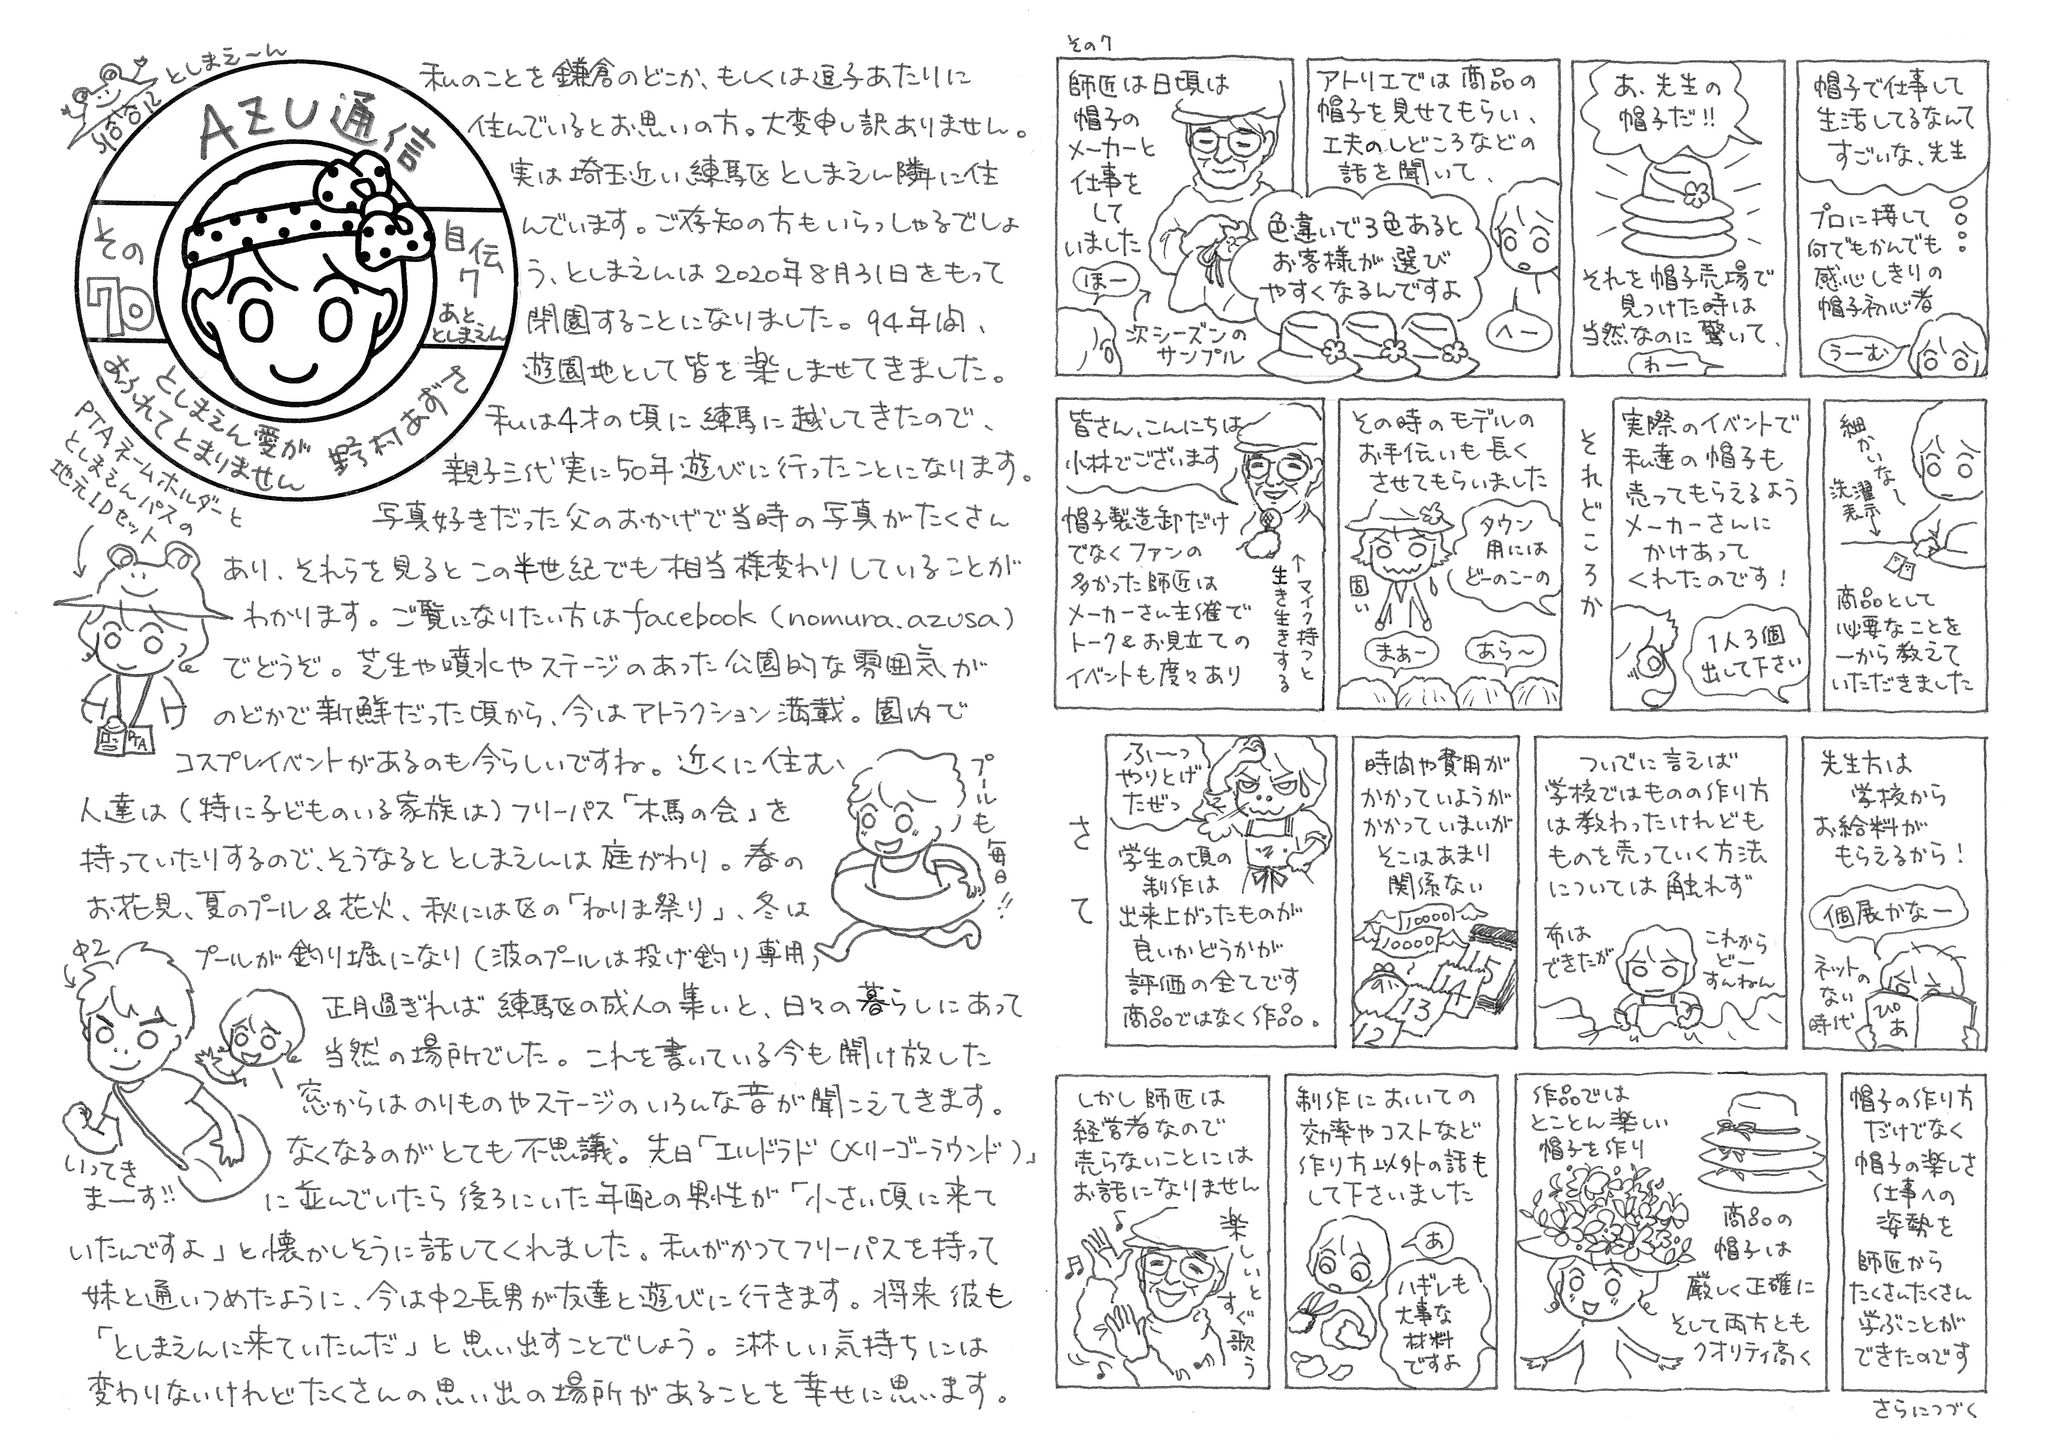 としまえーん
AZU通信
その
70
自伝
7
あと、
としまえん
としまえん愛が
あふれてとまりません
野村あずさ
PTAネームホルダーと
としまえんパスの
地元IDセット
私のことを鎌倉のどこか、もしくは逗子あたりに
住んでいるとお思いの方。大変申し訳ありません。
実は埼玉近い練馬区としまえん隣に住
んでいます。ご存知の方もいらっしゃるでしょ
う、としまえんは2020年8月31日をもって
閉園することになりました。94年間、
遊園地として皆を楽しませてきました。
私は4才の頃に練馬に越してきたので、
親子三代実に50年遊びに行ったことになります。
写真好きだった父のおかげで当時の写真がたくさん
あり、それらを見るとこの半世紀でも相当様変わりしていることが
わかります。ご覧になりたい方はfacebook(nomura.azusa)
でどうぞ。芝生や噴水やステージのあった公園的な雰囲気が
のどかで新鮮だった頃から、今はアトラクション満載。園内で
コスプレイベントがあるのも今らしいですね。近くに住む
人達は(特に子どものいる家族は)フリーパス「木馬の会」を
持っていたりするので、そうなるととしまえんは庭がわり。春の
お花見、夏のプール&花火、秋には区の「ねりま祭り」、冬は
プールが釣り堀になり(波のプールは投げ釣り専用)
正月過ぎれば練馬区の成人の集いと、日々の暮らしにあって
当然の場所でした。これを書いている今も開け放した
窓からはのりものやステージのいろんな音が聞こえてきます。
なくなるのがとても不思議。先日「エルドラド(メリーゴーラウンド)」
に並んでいたら後ろにいた年配の男性が「小さい頃に来て
いたんですよ」と懐かしそうに話してくれました。私がかつてフリーパスを持って
妹と通いつめたように、今は中2長男が友達と遊びに行きます。将来彼も
「としまえんに来ていたんだ」と思い出すことでしょう。淋しい気持ちには
変わりないけれどたくさんの思い出の場所があることを幸せに思います。
PTA
プールも毎日!!
中2
いってき
まーす!!
その7
師匠は日頃は
帽子の
メーカーと
仕事を
して
いました
ほー
次シーズンの
サンプル
アトリエでは商品の
帽子を見せてもらい、
工夫のしどころなどの
話を聞いて、
色違いで3色あると
お客様が選び
やすくなるんですよ
へー
あ、先生の
帽子だ!!
それを帽子売場で
見つけた時は
当然なのに驚いて、
わー
帽子で仕事して
生活してるなんて
すごいな、先生
プロに接して
何でもかんでも
感心しきりの
帽子初心者
うーむ
皆さん、こんにちは
小林でございます
帽子製造卸だけ
でなくファンの
多かった師匠は
メーカーさん主催で
トーク&お見立ての
イベントも度々あり
↑マイク持つと
生き生きする
その時のモデルの
お手伝いも長く
させてもらいました
タウン
用には
どーのこーの
固い
まあ〜
あら〜
それどころか
実際のイベントで
私達の帽子も
売ってもらえるよう
メーカーさんに
かけあって
くれたのです!
1人3個
出して下さい
細かいなー
洗濯
表示
商品として
必要なことを
一から教えて
いただきました
さて
ふ〜っ
やりとげ
たぜっ
学生の頃の
制作は
出来上がったものが
良いかどうかが
評価の全てです
商品ではなく作品。
時間や費用が
かかっていようが
かかっていまいが
そこはあまり
関係ない
10000
10000
15
14
13
12
ついでに言えば
学校ではものの作り方
は教わったけれども
ものを売っていく方法
については触れず
布は
できたが
これから
どー
すんねん
先生方は
学校から
お給料が
もらえるから!
個展かなー
ネットの
ない
時代
ぴあ
しかし師匠は
経営者なので
売らないことには
お話になりません
楽しいとすぐ歌う
制作においての
効率やコストなど
作り方以外の話も
して下さいました
あ
ハギレも
大事な
材料
ですよ
作品では
とことん楽しい
帽子を作り
商品の
帽子は
厳しく正確に
そして両方とも
クオリティ高く
帽子の作り方
だけでなく
帽子の楽しさ
仕事への
姿勢を
師匠から
たくさんたくさん
学ぶことが
できたのです
さらにつづく